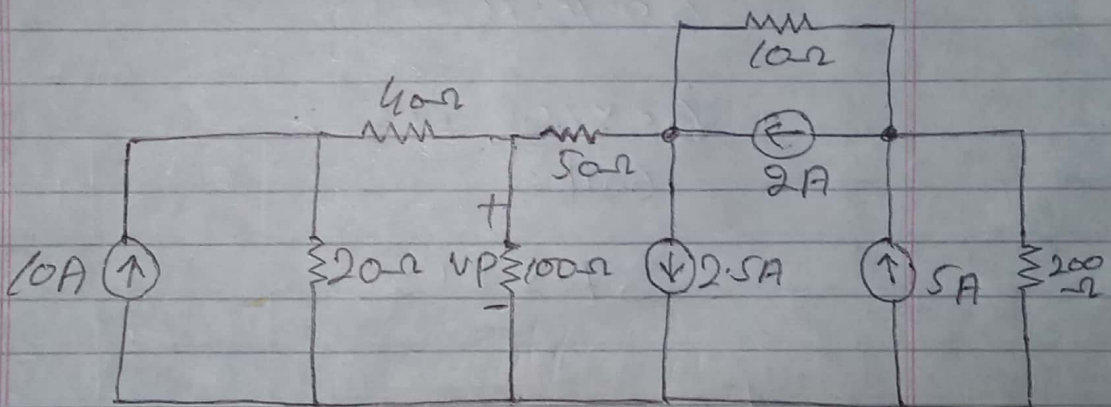 10Ω
40Ω
50Ω
2A
+
10A
20Ω
VP
100Ω
2.5A
5A
200
Ω
-